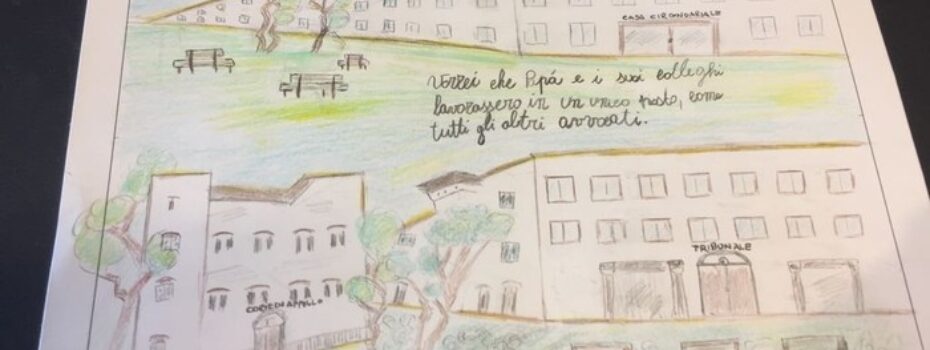 CASA CIRCONDARIALE
Vorrei che Papá e i suoi colleghi
lavorassero in un unico posto, come
tutti gli altri avvocati.
TRIBUNALE
CORTE D'APPELLO